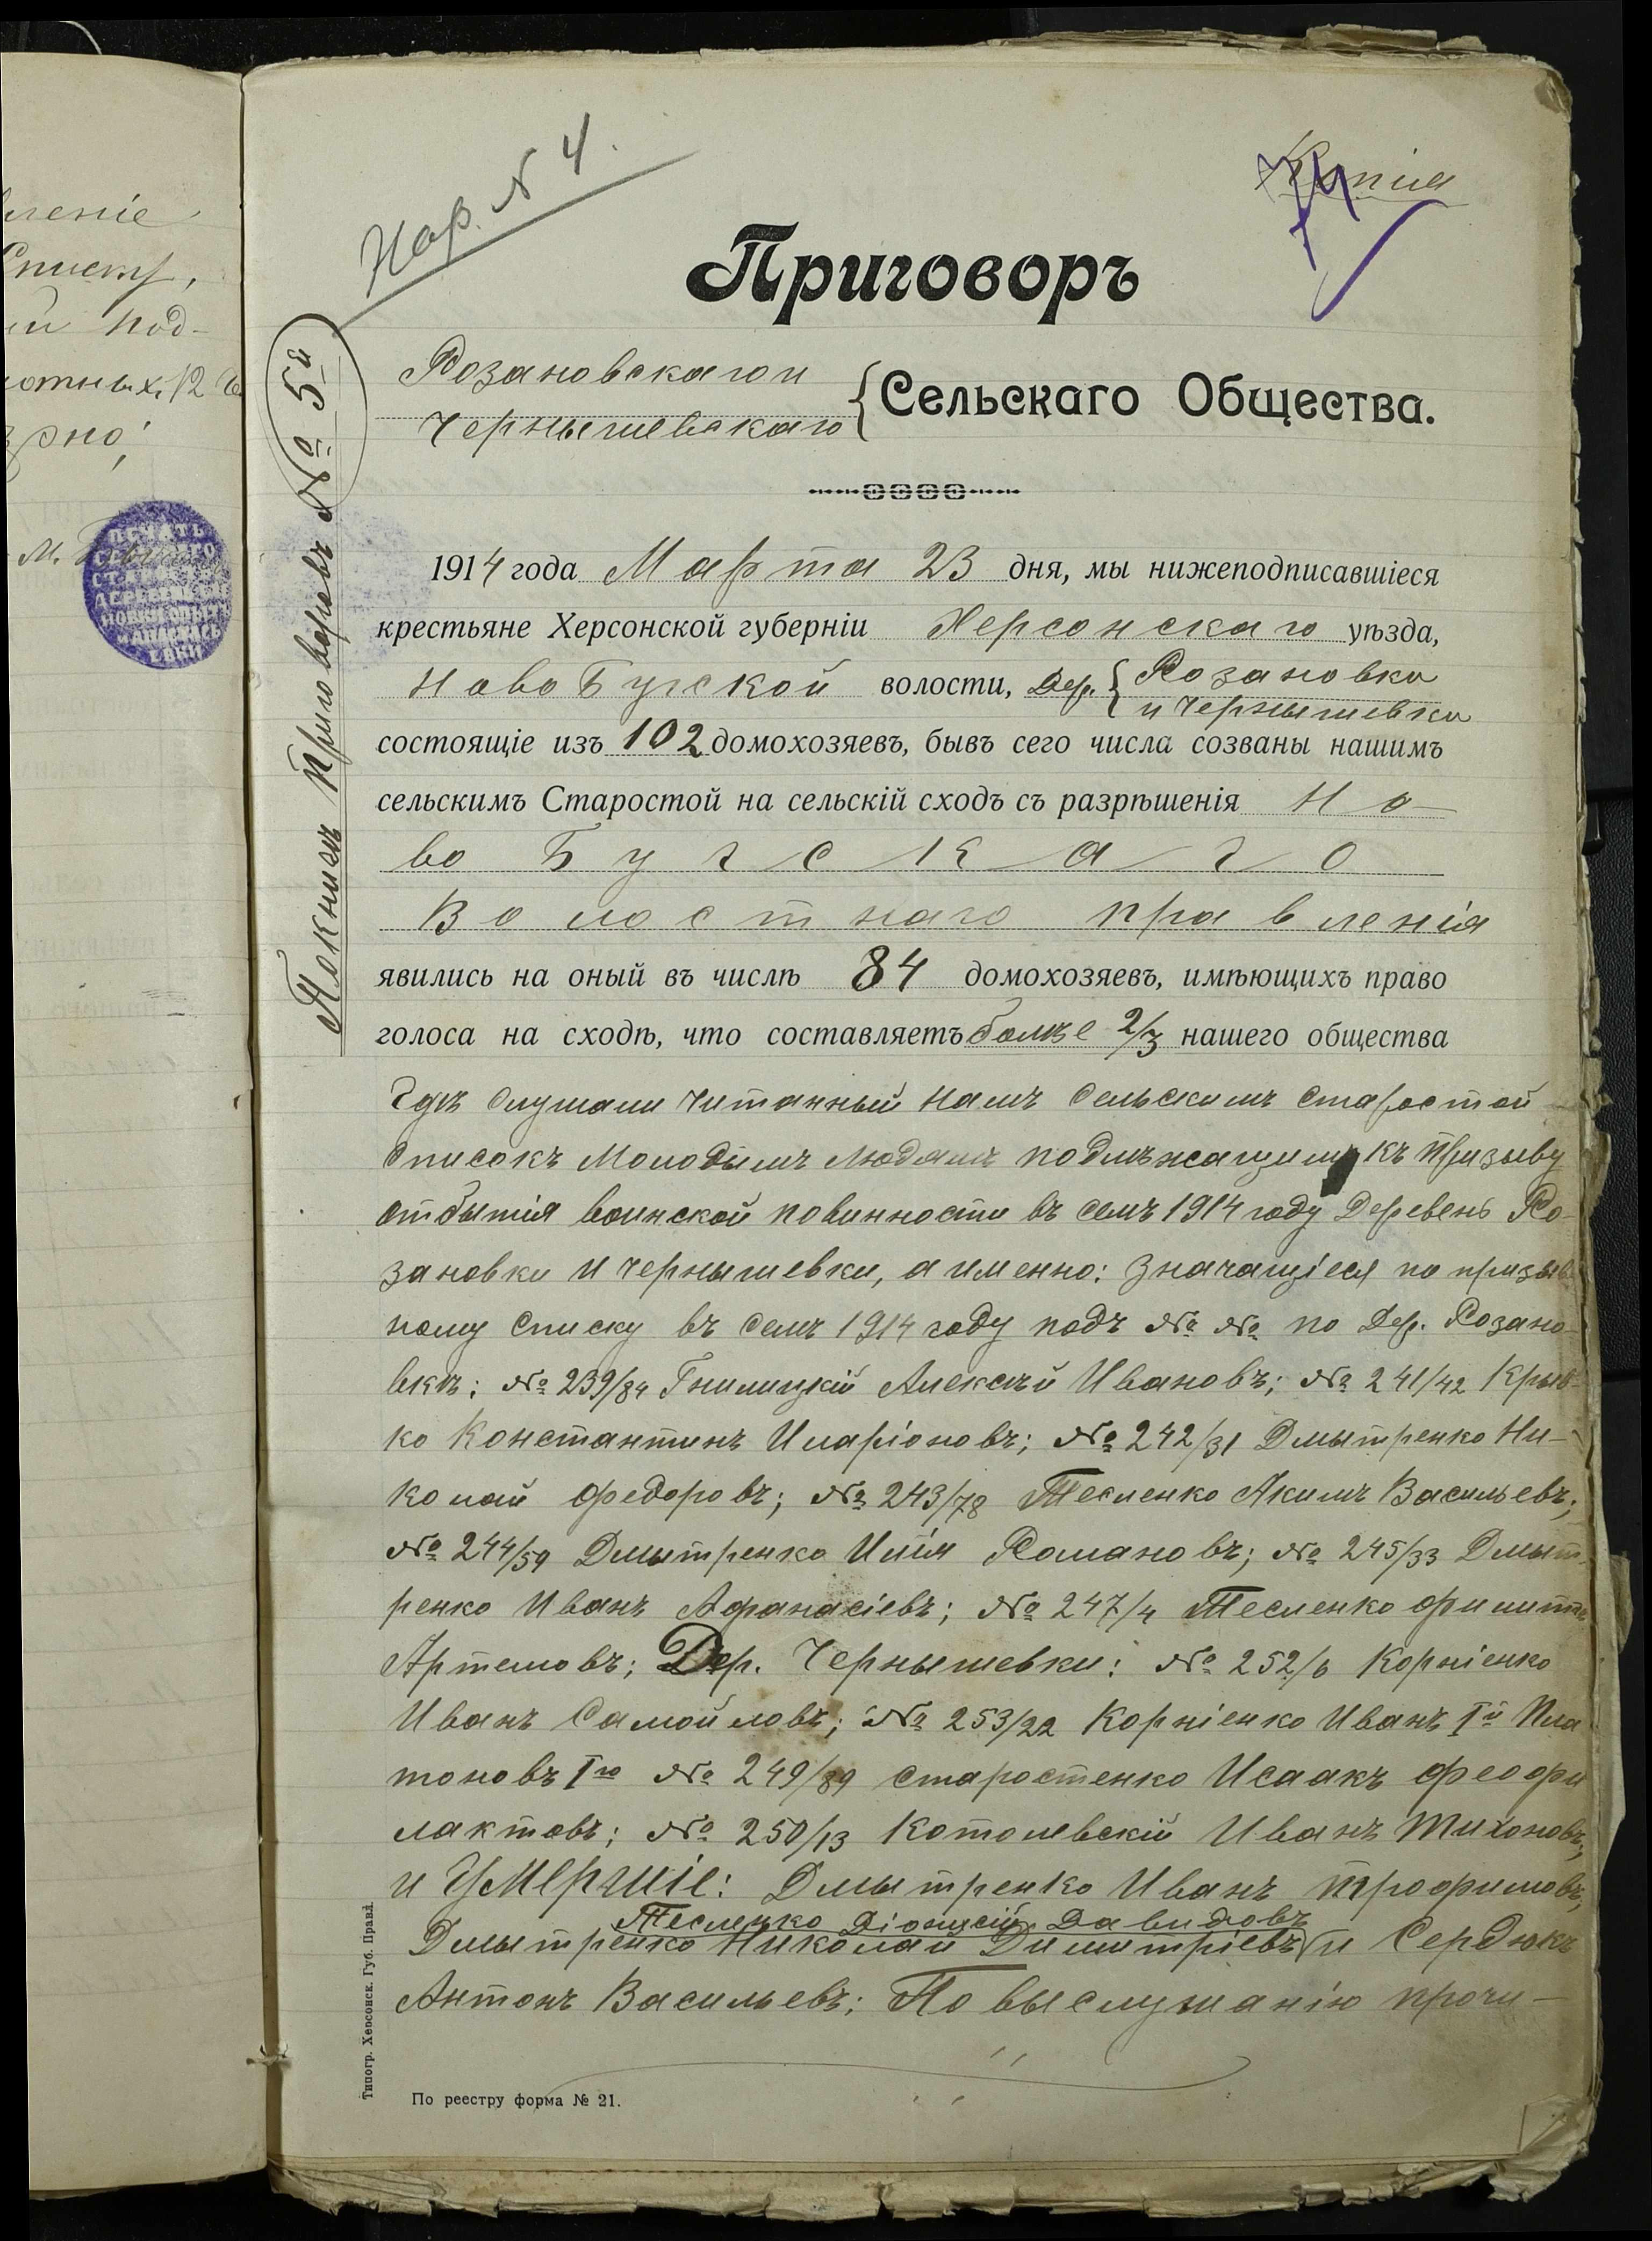 леніе
Списку,
ми под-
отныхъ 12 
зрно;
М.
ПЕЧАТЬ
Нар. N 4.
Копія
74
Приговоръ
Розановскаго и
Чернышевскаго
Сельскаго Общества.
По книгѣ приговоровъ № 5й
1914 года Марта 23 дня, мы нижеподписавшіеся
крестьяне Херсонской губерніи Херсонскаго уѣзда,
Ново Бугской волости, Дер. { Розановки
и Чернышевки
состоящіе изъ 102 домохозяевъ, бывъ сего числа созваны нашимъ
сельскимъ Старостой на сельскій сходъ съ разрѣшенія Но-
во Бугскаго
Волостнаго правленія
явились на оный въ числѣ 84 домохозяевъ, имѣющихъ право
голоса на сходѣ, что составляетъ болѣе 2/3 нашего общества
Гдѣ слушали читанный намъ сельскимъ старостой
списокъ молодымъ людямъ подлѣжащимъ къ призыву
отбытія воинской повинности въ семъ 1914 году Деревень Ро-
зановки и Чернышевки, а именно: значащіеся по призыв
ному списку въ семъ 1914 году подъ №№ по Дер. Розано-
вкѣ: № 239/84 Гнилицкій Алексѣй Ивановъ; № 241/42 Крыв-
ко Константинъ Иларіоновъ; № 242/31 Дмытренко Ни-
колай Федоровъ; № 243/78 Тесленко Акимъ Васильевъ;
№ 244/59 Дмытренко Илія Романовъ; № 245/33 Дмыт-
ренко Иванъ Афанасіевъ; № 247/4 Тесленко Филиппъ
Артемовъ; Дер. Чернышевки: № 252/6 Корніенко
Иванъ Самойловъ; № 253/22 Корніенко Иванъ Iй Пла
тоновъ Iго № 249/89 Старостенко Исаакъ Феофи
лактовъ; № 250/13 Котолевскій Иванъ Тихоновъ,
и Умершіе: Дмытренко Иванъ Трофимовъ,
Тесленко Діонисій Давидовъ
Дмытренко Николай Димитріевъ и Сердюкъ
Антонъ Васильевъ; По выслушанію прочи-
Типогр. Херсонск. Губ. Правл.
По реестру форма № 21.